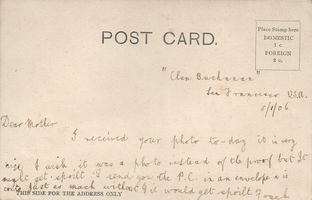 POST CARD.
Place Stamp here
DOMESTIC
1c
FOREIGN
2c.
"Clan Buchanan"
San Francisco U.S.A.
5/1/06
Dear Mother
I received your photo to-day it is very
nice, I wish it was a photo instead of the proof but it
might get spoilt. I send you the P.C. in an envelope as it
costs just as much without & it would get spoilt
THIS SIDE FOR THE ADDRESS ONLY